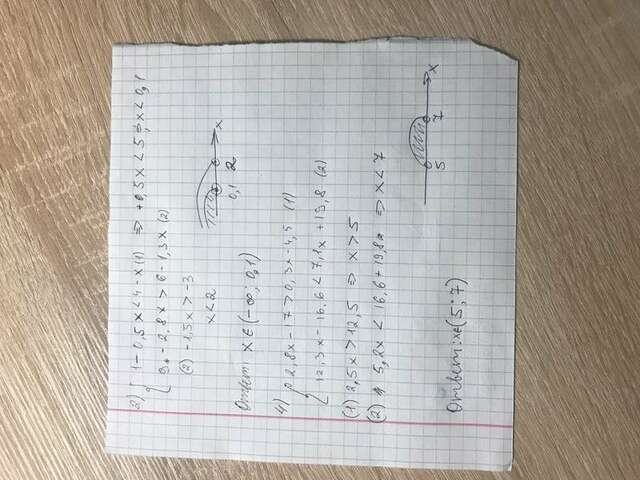 2) { 1 - 0,5x < 4 - x (1) ⇒ +0,5x < 5 ⇒ x < 0,1
9 - 2,8x > 6 - 1,3x (2)
(2) -1,5x > -3
x < 2
x
0,1 2
Ответ: x ∈ (-∞; 0,1)
4) { 2,8x - 17 > 0,3x - 4,5 (1)
12,3x - 16,6 < 7,1x + 19,8 (2)
(1) 2,5x > 12,5 ⇒ x > 5
(2) 5,2x < 16,6 + 19,8 ⇒ x < 7
5 7 x
Ответ: x ∈ (5; 7)